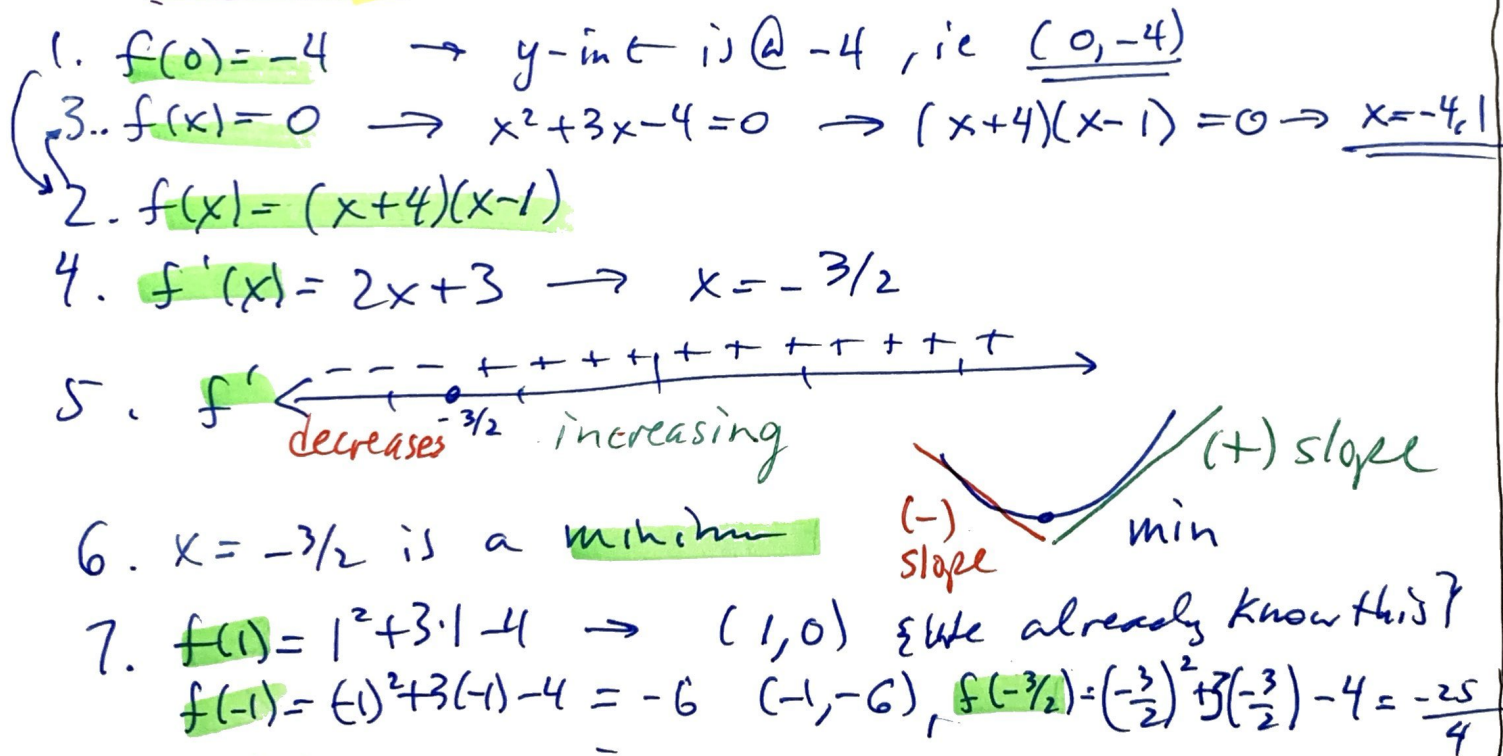 1. f(0) = -4 → y-int is @ -4, ie (0,-4)
3.. f(x) = 0 → x²+3x-4=0 → (x+4)(x-1)=0 → x=-4,1
2. f(x) = (x+4)(x-1)
4. f'(x) = 2x+3 → x = -3/2
- - - + + + + + + + + + + +
5. f'
-3/2
decreases increasing
(+) slope
(-) slope
min
6. x = -3/2 is a minimum
7. f(1) = 1²+3·1-4 → (1,0) {We already know this}
f(-1) = (-1)²+3(-1)-4 = -6 (-1,-6), f(-3/2) = (-3/2)²+3(-3/2)-4 = -25/4